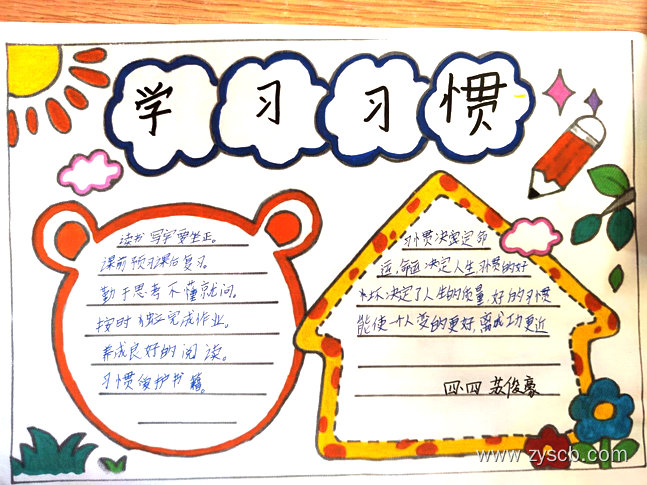 学习习惯
读书写字要坐正。
课前预习课后复习。
勤于思考不懂就问。
按时独立完成作业。
养成良好的阅读。
习惯爱护书籍。
习惯决定命
运,命运决定人生习惯的好
坏决定了人生的质量,好的习惯
能使一个人变的更好,离成功更近
四.四 苏俊豪
www.zyscb.com